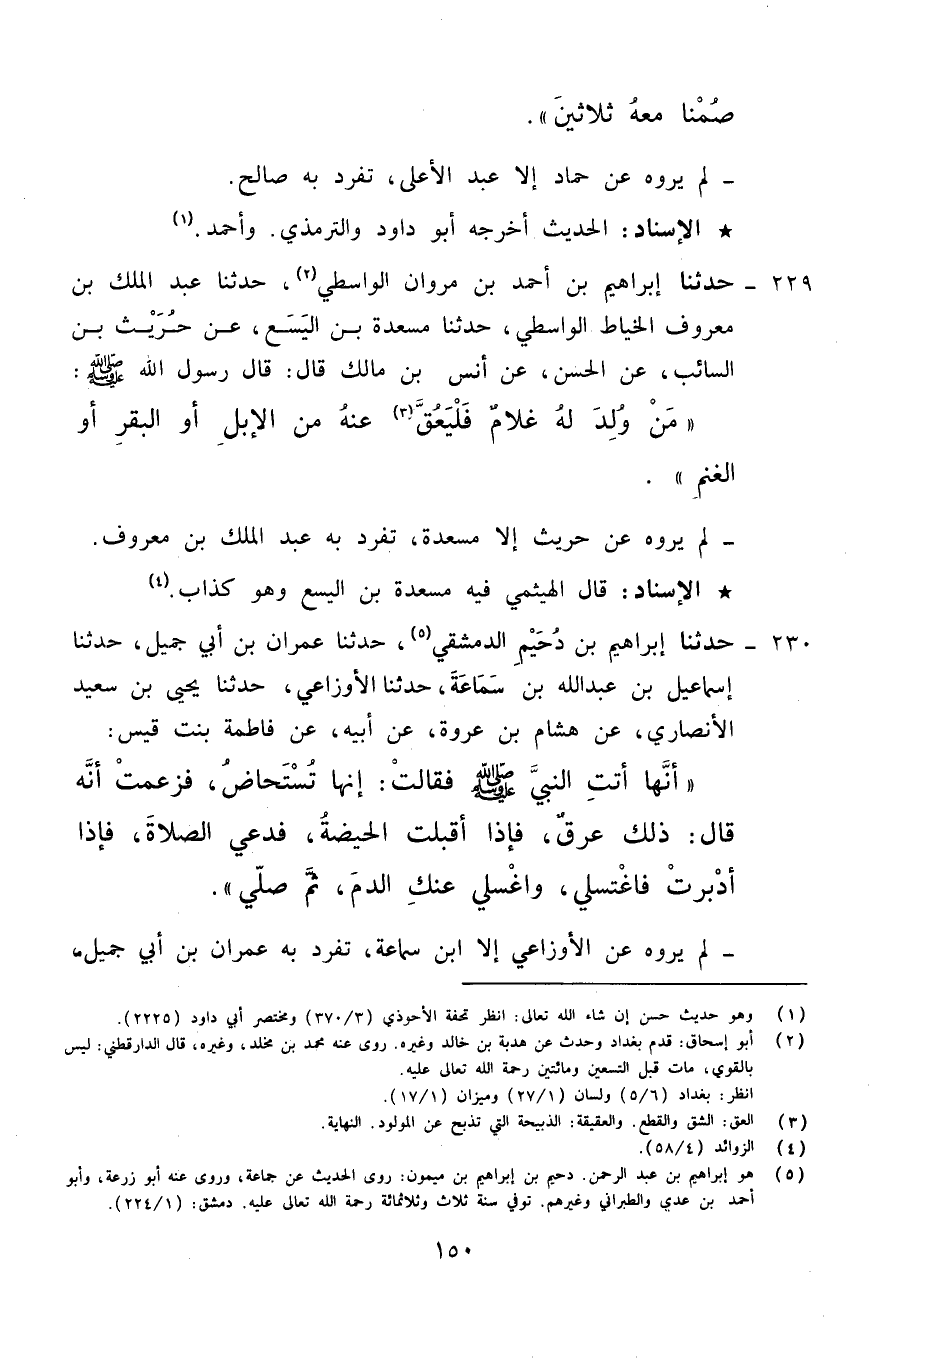 صُمْنا معهُ ثلاثينَ».
ـ لم يروه عن حماد إلا عبد الأعلى، تفرد به صالح.
★ الإسناد: الحديث أخرجه أبو داود والترمذي. وأحمد.(١)
٢٢٩ ـ حدثنا إبراهيم بن أحمد بن مروان الواسطي(٢)، حدثنا عبد الملك بن
معروف الخياط الواسطي، حدثنا مسعدة بن اليَسَع، عن حُرَيْث بن
السائب، عن الحسن، عن أنس بن مالك قال: قال رسول الله ﷺ:
« مَنْ وُلِدَ لهُ غلامٌ فَلْيَعُقَّ(٣) عنهُ من الإبلِ أو البقرِ أو
الغنمِ » .
ـ لم يروه عن حريث إلا مسعدة، تفرد به عبد الملك بن معروف.
★ الإسناد: قال الهيثمي فيه مسعدة بن اليسع وهو كذاب.(٤)
٢٣٠ ـ حدثنا إبراهيم بن دُحَيْمِ الدمشقي(٥)، حدثنا عمران بن أبي جميل، حدثنا
إسماعيل بن عبدالله بن سَمَاعَةَ، حدثنا الأوزاعي، حدثنا يحيى بن سعيد
الأنصاري، عن هشام بن عروة، عن أبيه، عن فاطمة بنت قيس:
« أنَّها أتتِ النبيَّ ﷺ فقالتْ: إنها تُسْتَحاضُ، فزعمتْ أنَّه
قال: ذلك عرقٌ، فإذا أقبلت الحيضةُ، فدعي الصلاةَ، فإذا
أدْبرتْ فاغْتسلي، واغْسلي عنكِ الدمَ، ثمَّ صلّي».
ـ لم يروه عن الأوزاعي إلا ابن سماعة، تفرد به عمران بن أبي جميل،
(١) وهو حديث حسن إن شاء الله تعالى: انظر تحفة الأحوذي (٣/٣٧٠) ومختصر أبي داود (٢٢٢٥).
(٢) أبو إسحاق: قدم بغداد وحدث عن هدبة بن خالد وغيره. روى عنه محمد بن مخلد، وغيره، قال الدارقطني: ليس
بالقوي، مات قبل التسعين ومائتين رحمة الله تعالى عليه.
انظر: بغداد (٥/٦) ولسان (٢٧/١) وميزان (١٧/١).
(٣) العق: الشق والقطع. والعقيقة: الذبيحة التي تذبح عن المولود. النهاية.
(٤) الزوائد (٥٨/٤).
(٥) هو إبراهيم بن عبد الرحمن. دحيم بن إبراهيم بن ميمون: روى الحديث عن جماعة، وروى عنه أبو زرعة، وأبو
أحمد بن عدي والطبراني وغيرهم. توفي سنة ثلاث وثلاثمائة رحمة الله تعالى عليه. دمشق: (٢٢٤/١).
١٥٠